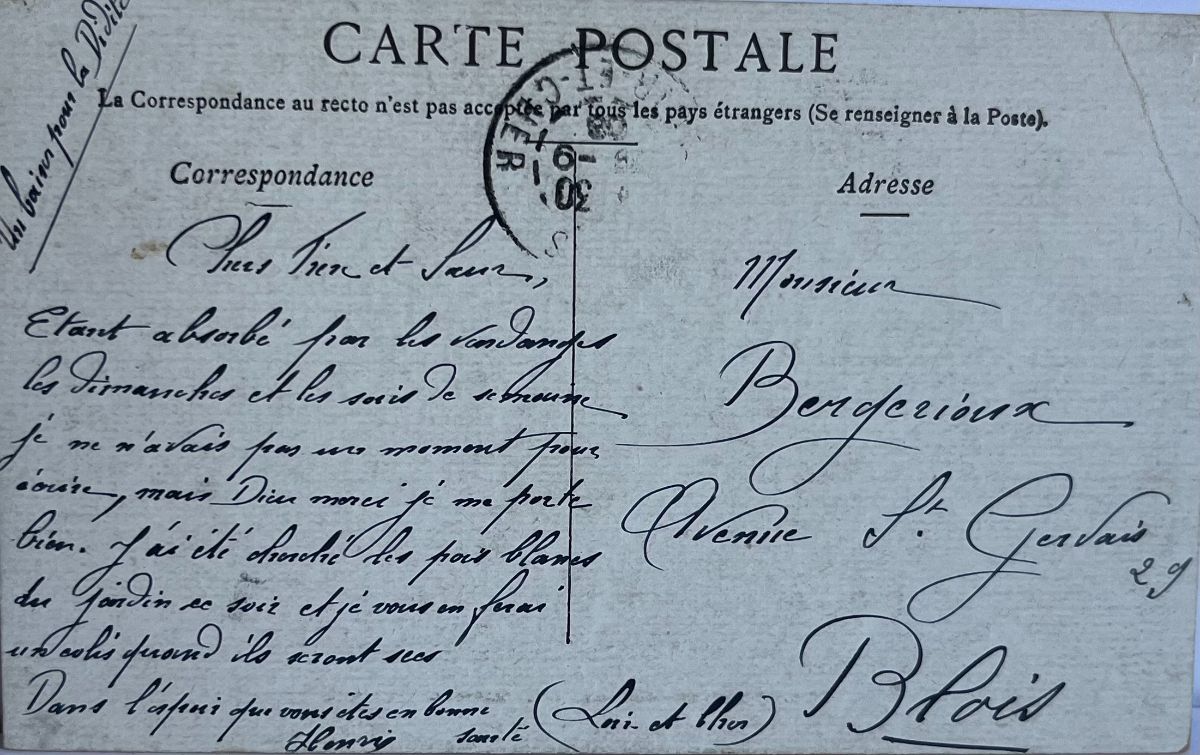 Un baiser pour la Didite
CARTE POSTALE
La Correspondance au recto n'est pas acceptée par tous les pays étrangers (Se renseigner à la Poste).
Correspondance
Chers Frère et Sœur,
Etant absorbé par les vendanges
les dimanches et les soirs de semaine
je ne n'avais pas un moment pour
écrire, mais Dieu merci je me porte
bien. J'ai été cherché les pois blancs
du jardin ce soir et je vous en ferai
un colis quand ils seront secs
Dans l'espoir que vous êtes en bonne
santé
Henri
Adresse
Monsieur
Bergerioux
Avenue St. Gervais
29
Blois
(Loir et Cher)
ET-CHER
30